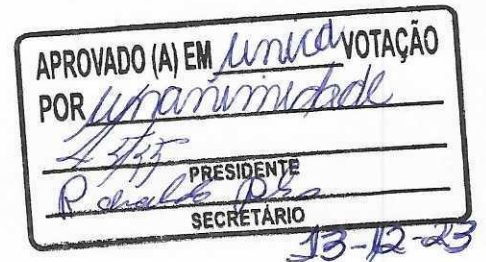 APROVADO (A) EM unica VOTAÇÃO
POR unanimidade
PRESIDENTE
SECRETÁRIO
13-12-23